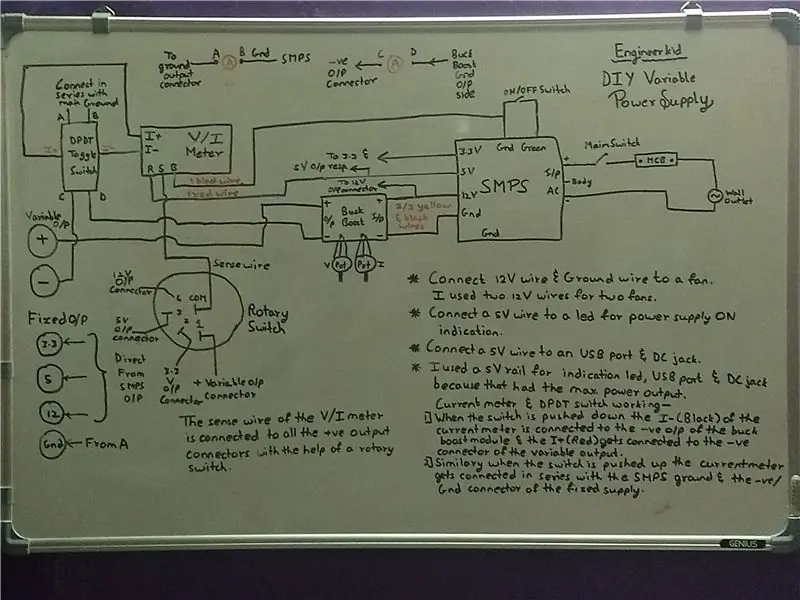 Engineerkid
DIY Variable
Power Supply
To
ground
output
connector
A
A
B Gnd
SMPS
-ve
O/P
Connector
C
A
D
Buck
Boost
Gnd
O/P
side
Connect in
series with
main Ground
A
B
DPDT
Toggle
Switch
C
D
I+
I-
I+
I-
V/I
Meter
R S B
1 black wire
1 red wire
ON/OFF Switch
To 3.3 &
5V O/p resp.
To 12V
O/P connector
3.3V
Gnd Green
5V
SMPS
12V
Gnd
Gnd
+
I/P
Body
AC
-
Main Switch
MCB
Wall
Outlet
2/3 yellow
& black
wires
+
+
O/P
Buck
Boost
I/P
-
-
V
Pot
Pot
I
Variable
O/P
+
-
Sense wire
12V
O/P
Connector
4
COM
3
2
1
Rotary
Switch
5V
O/P
connector
3.3
V
O/P
Connector
+ Variable O/P
Connector
Fixed O/P
3.3
5
12
Gnd
From A
Direct
From
SMPS
O/P
The sense wire of the V/I meter
is connected to all the +ve output
connectors with the help of a rotary
switch.
* Connect 12V wire & Ground wire to a fan.
I used two 12V wires for two fans.
* Connect a 5V wire to a led for power supply ON
indication.
* Connect a 5V wire to an USB port & DC jack.
* I used a 5V rail for indication led, USB port & DC jack
because that had the max. power output.
Current meter & DPDT switch working-
1] When the switch is pushed down the I-(Black) of the
current meter is connected to the -ve o/p of the buck
boost module & the I+(Red) gets connected to the -ve
connector of the variable output.
2] Similary when the switch is pushed up the current meter
gets connected in series with the SMPS ground & the -ve/
Gnd connector of the fixed supply.
GENIUS